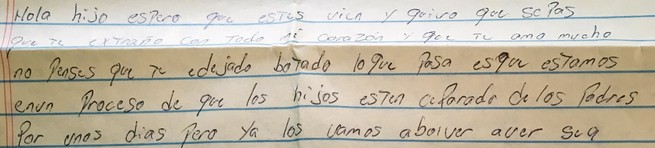 Hola hijo espero que estes vien y quiro que sepas
que te extraño con todo mi corazon y que te amo mucho
no Penses que te edejado botado loque Pasa esque estamos
enun Proceso de que los hijos esten ceparado de los Padres
Por unos dias Pero ya los vamos abolver aver sea